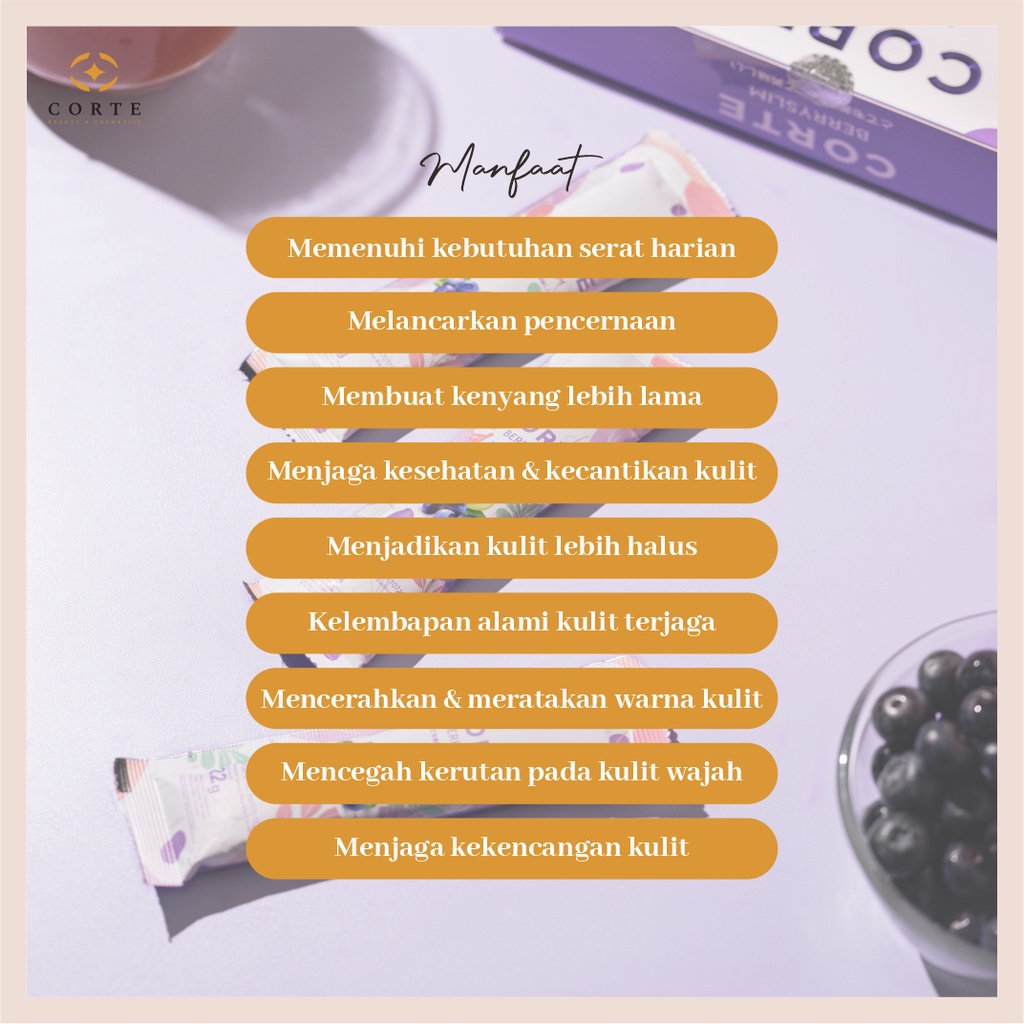 CORTE
BEAUTY & COSMETICS
CORTE
BERRYSLIM
CORTE
Manfaat
Memenuhi kebutuhan serat harian
Melancarkan pencernaan
Membuat kenyang lebih lama
Menjaga kesehatan & kecantikan kulit
Menjadikan kulit lebih halus
Kelembapan alami kulit terjaga
Mencerahkan & meratakan warna kulit
Mencegah kerutan pada kulit wajah
Menjaga kekencangan kulit
12 g